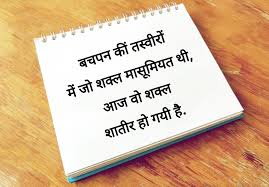 बचपन की तस्वीरों
में जो शक्ल मासूमियत थी,
आज वो शक्ल
शातीर हो गयी है.